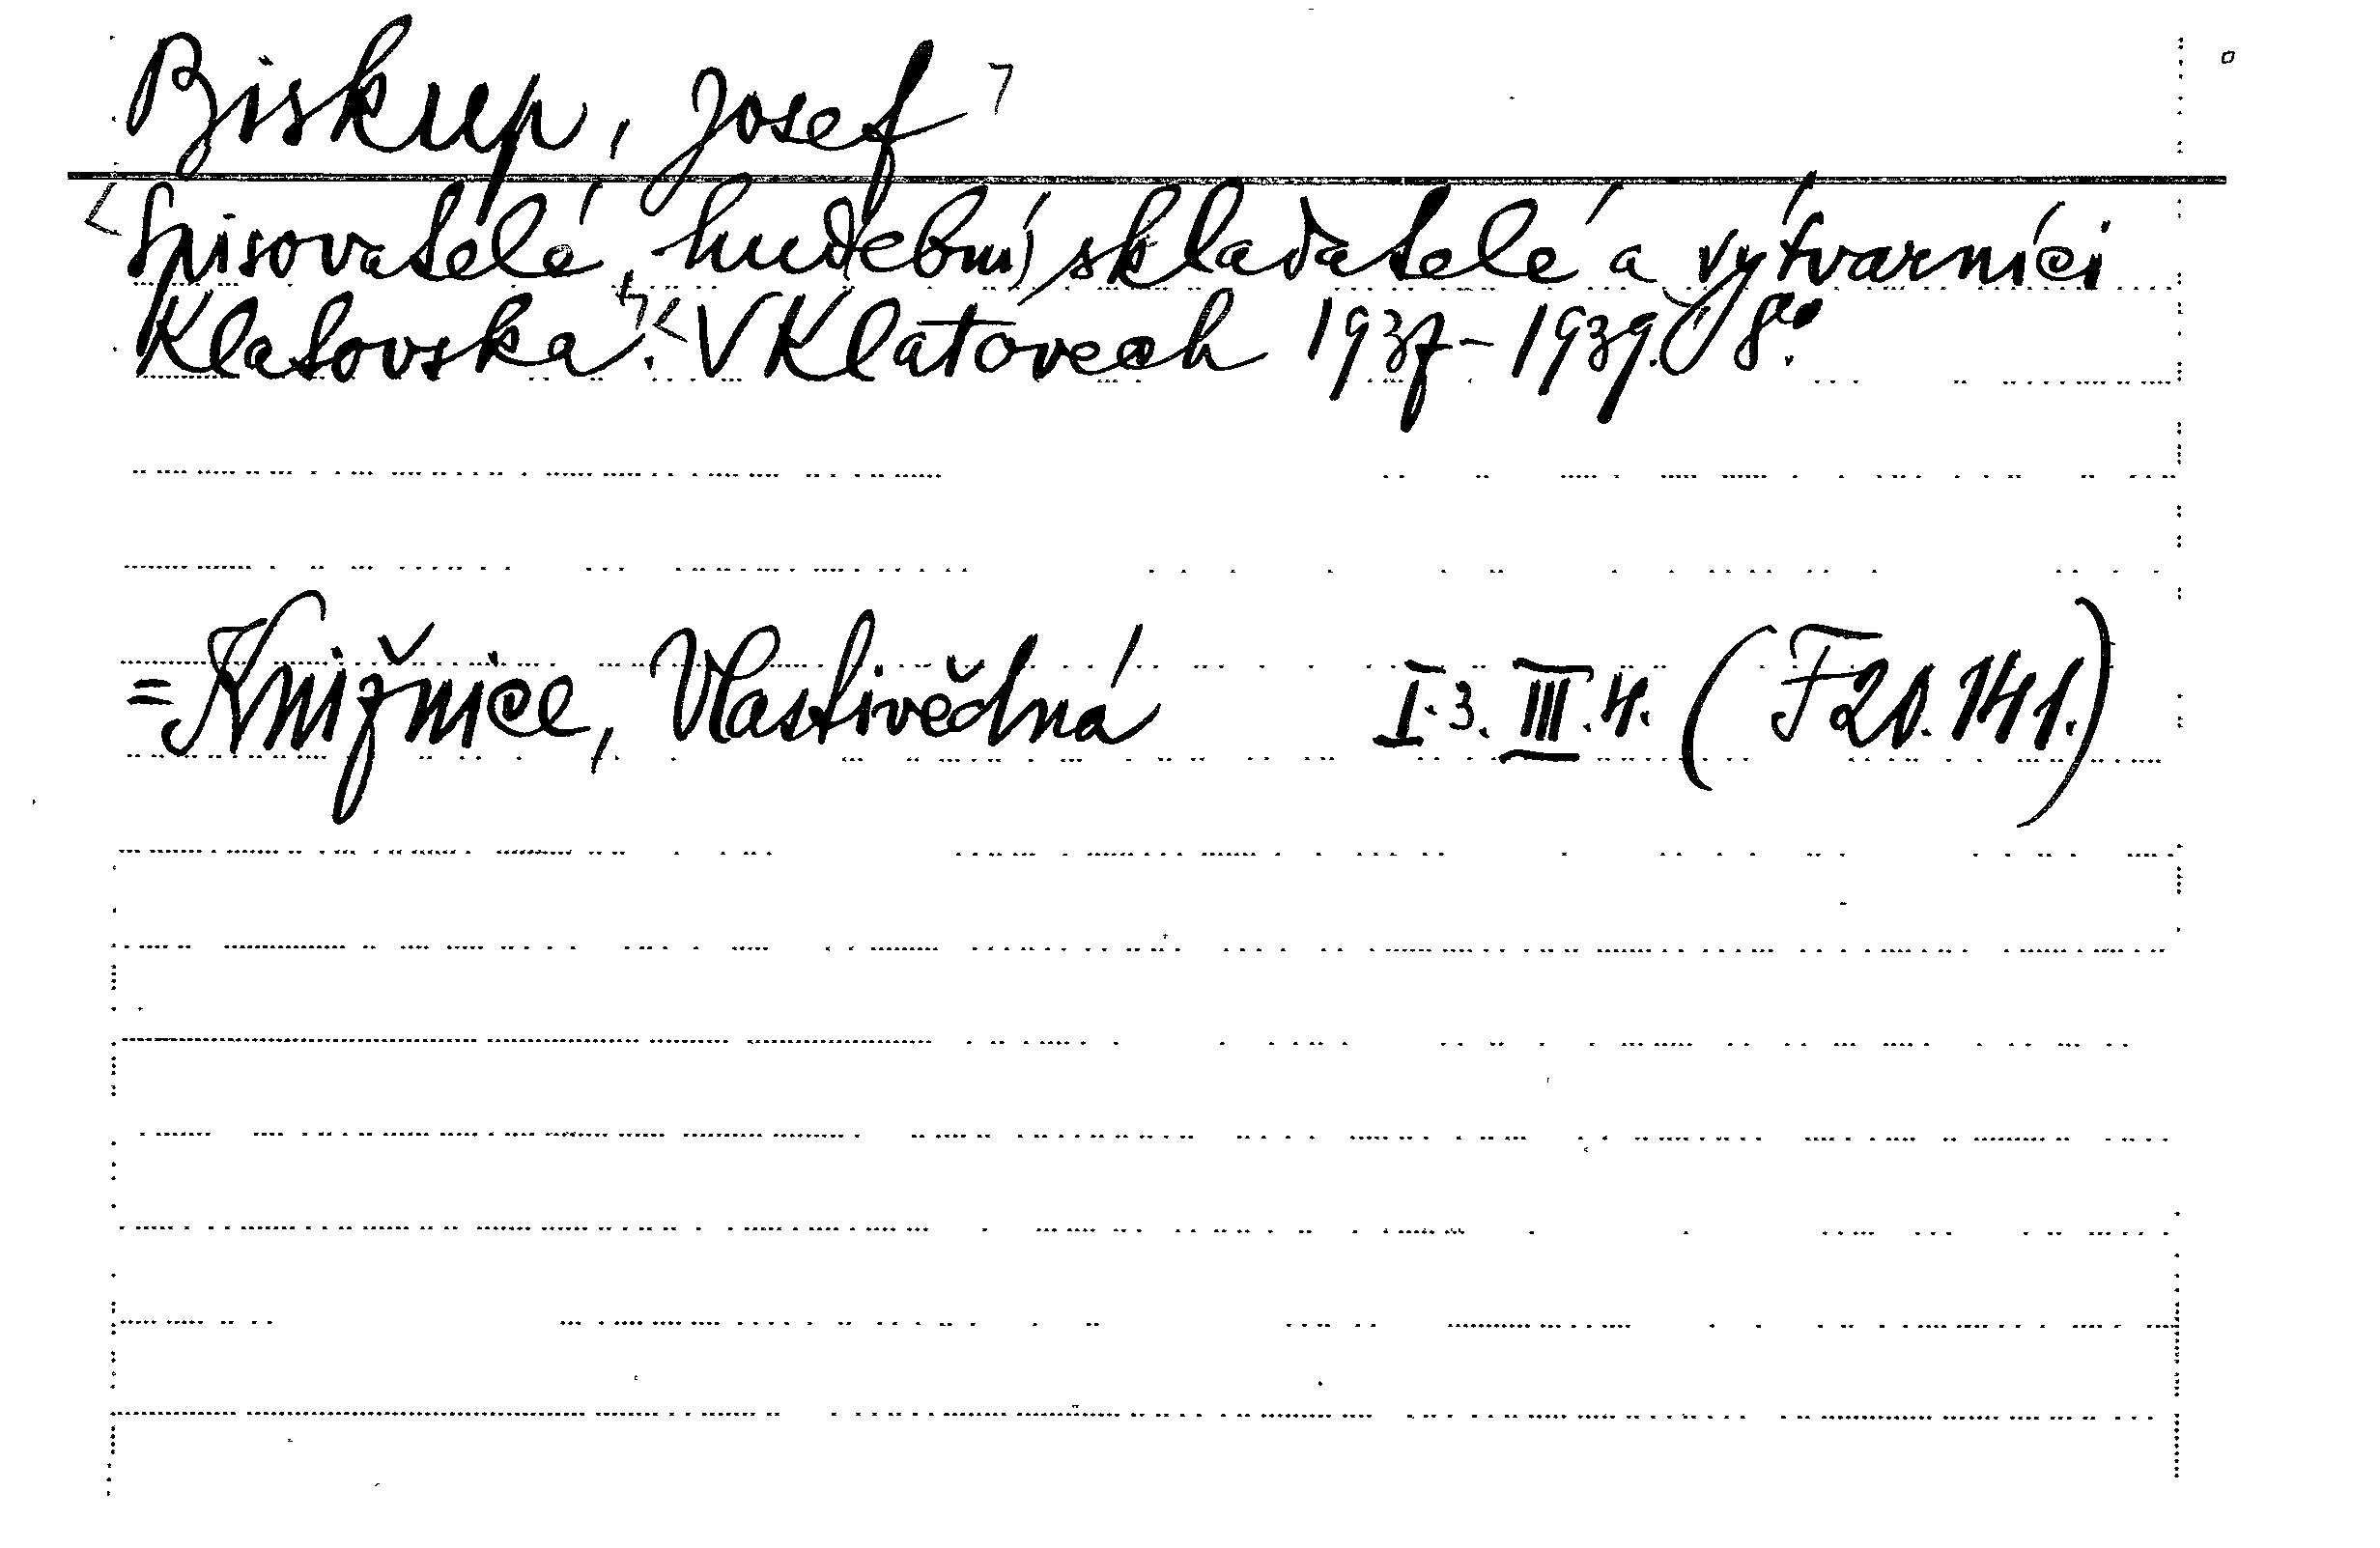 Biskup, Josef
Spisovatelé, hudební skladatelé a výtvarníci
Klatovska. V Klatovech 1937-1939. 8°.
= Knižnice, Vlastivědná I.3. III.4. (F20.141.)